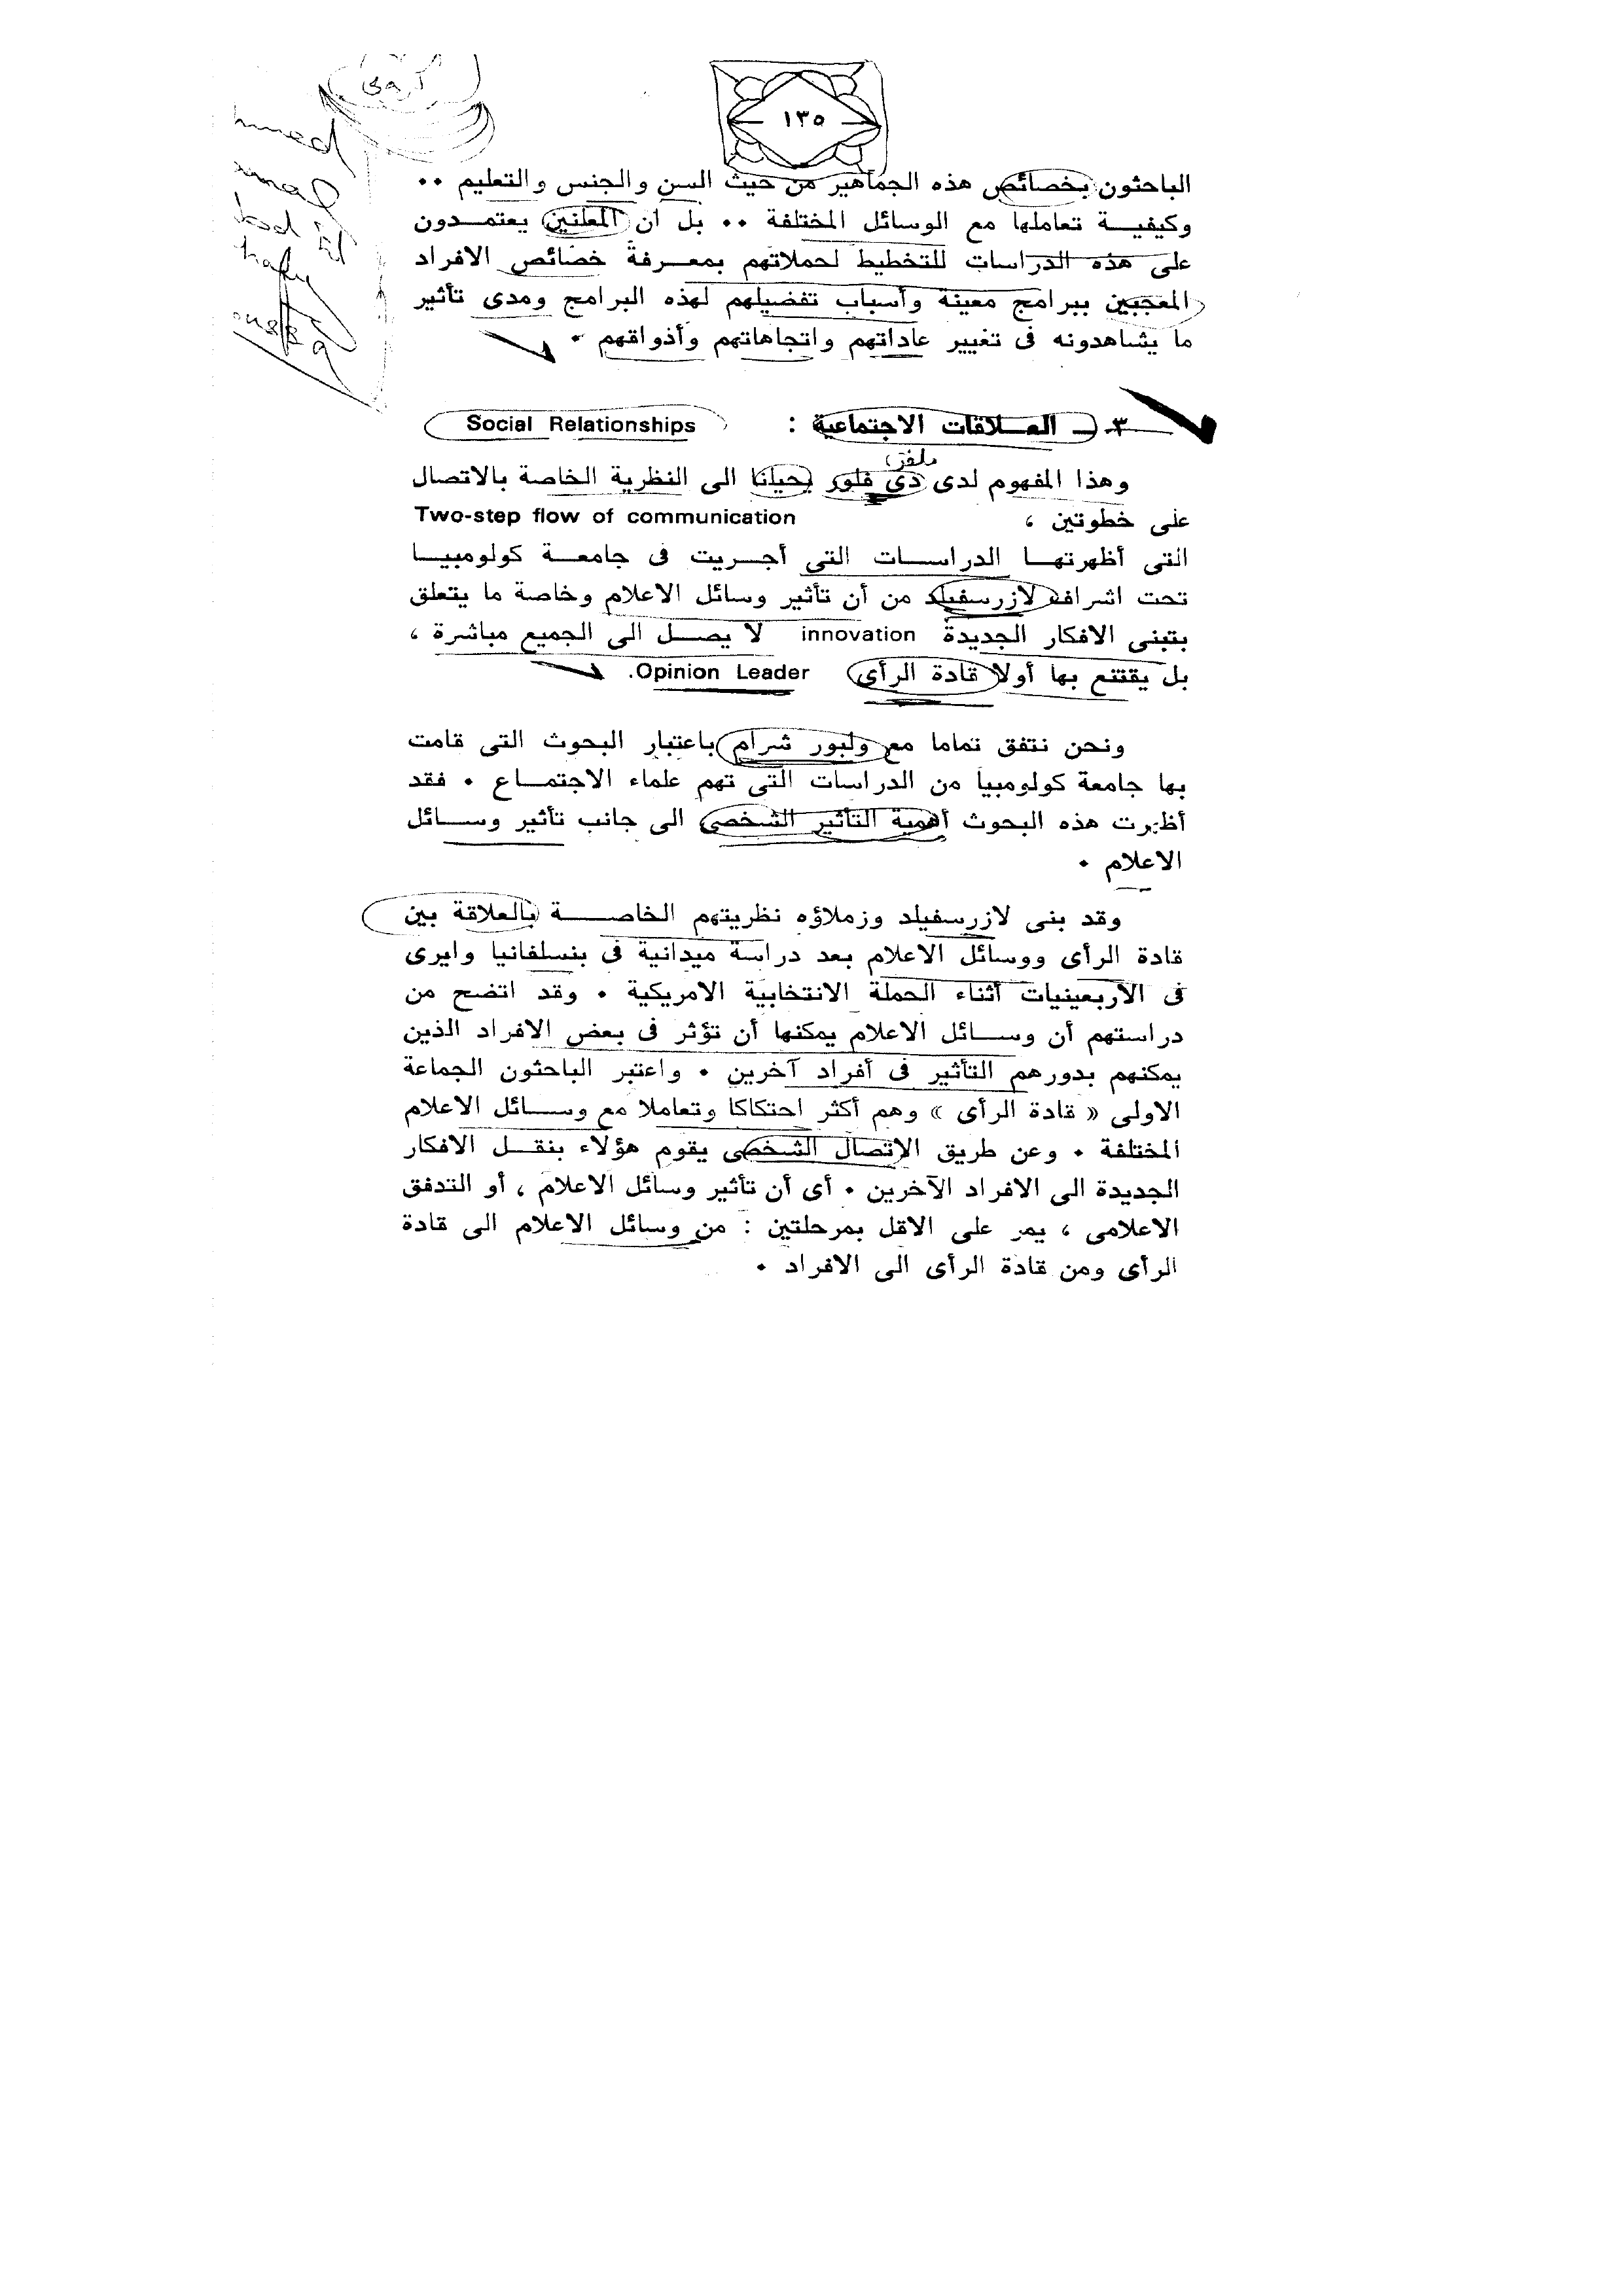 ١٣٥
الباحثون بخصائص هذه الجماهير من حيث السن والجنس والتعليم ٠٠
وكيفيــة تعاملها مع الوسائل المختلفة ٠٠ بل ان المعلنين يعتمــدون
على هذه الدراسات للتخطيط لحملاتهم بمعــرفة خصائص الافراد
المعجبين ببرامج معينة وأسباب تفضيلهم لهذه البرامج ومدى تأثير
ما يشاهدونه فى تغيير عاداتهم واتجاهاتهم وأذواقهم ٠
٣ ـ العــلاقات الاجتماعية : Social Relationships
وهذا المفهوم لدى دى فلور يحيلنا الى النظرية الخاصة بالاتصال
على خطوتين ، Two-step flow of communication
التى أظهرتهــا الدراســات التى أجــريت فى جامعــة كولومبيــا
تحت اشراف لازرسفيلد من أن تأثير وسائل الاعلام وخاصة ما يتعلق
بتبنى الافكار الجديدة innovation لا يصــل الى الجميع مباشرة ،
بل يقتنع بها أولا قادة الرأى Opinion Leader.
ونحن نتفق تماما مع ولبور شرام باعتبار البحوث التى قامت
بها جامعة كولومبيا من الدراسات التى تهم علماء الاجتمــاع ٠ فقد
أظهرت هذه البحوث أهمية التأثير الشخصى الى جانب تأثير وســائل
الاعلام ٠
وقد بنى لازرسفيلد وزملاؤه نظريتهم الخاصــــة بالعلاقة بين
قادة الرأى ووسائل الاعلام بعد دراسة ميدانية فى بنسلفانيا وايرى
فى الأربعينيات أثناء الحملة الانتخابية الامريكية ٠ وقد اتضح من
دراستهم أن وســائل الاعلام يمكنها أن تؤثر فى بعض الافراد الذين
يمكنهم بدورهم التأثير فى أفراد آخرين ٠ واعتبر الباحثون الجماعة
الاولى « قادة الرأى » وهم أكثر احتكاكا وتعاملا مع وســائل الاعلام
المختلفة ٠ وعن طريق الاتصال الشخصى يقوم هؤلاء بنقــل الافكار
الجديدة الى الافراد الآخرين ٠ أى أن تأثير وسائل الاعلام ، أو التدفق
الاعلامى ، يمر على الاقل بمرحلتين : من وسائل الاعلام الى قادة
الرأى ومن قادة الرأى الى الافراد ٠